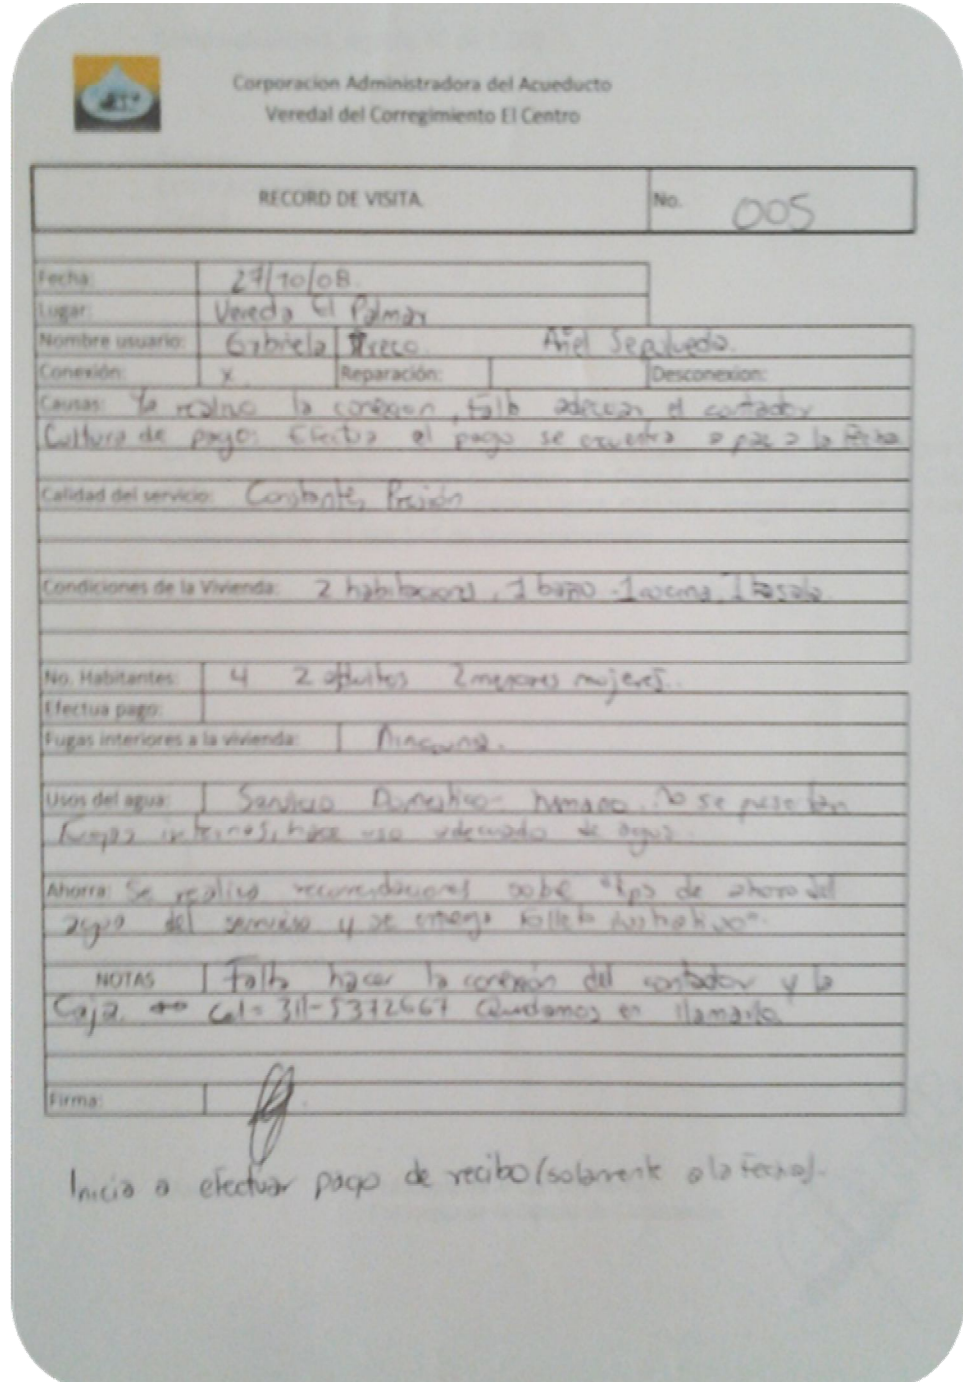 Corporacion Administradora del Acueducto
Veredal del Corregimiento El Centro
RECORD DE VISITA. No. 005
Fecha: 27/10/08.
Lugar: Vereda El Palmar
Nombre usuario: Gabriela Ariel Sepulveda.
Conexión: x Reparación: Desconexion:
Causas: Ya realizo la conexion, falta adecuar el contador
Cultura de pago: Efectua el pago se encuentra a paz a la fecha
Calidad del servicio: Constante, Presión
Condiciones de la Vivienda: 2 habitaciones, 1 baño - 1 cocina, 1
No. Habitantes: 4 2 adultos 2 menores mujeres.
Efectua pago:
Fugas interiores a la vivienda: Ninguna.
Usos del agua: Servicio Domestico - humano. No se presentan
fugas internas, hace uso adecuado de agua.
Ahorra: Se realiza recomendaciones sobre "tips de ahorro del
agua del servicio y se entrega folleto ilustrativo".
NOTAS Falta hacer la conexión del contador y la
Caja. Cel= 311-5372667 Quedamos en llamarlo.
Firma:
Inicia a efectuar pago de recibo (solamente a la fecha).